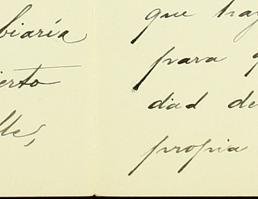 biaría
ierto
lles,
que hay
para q
dad de
propia